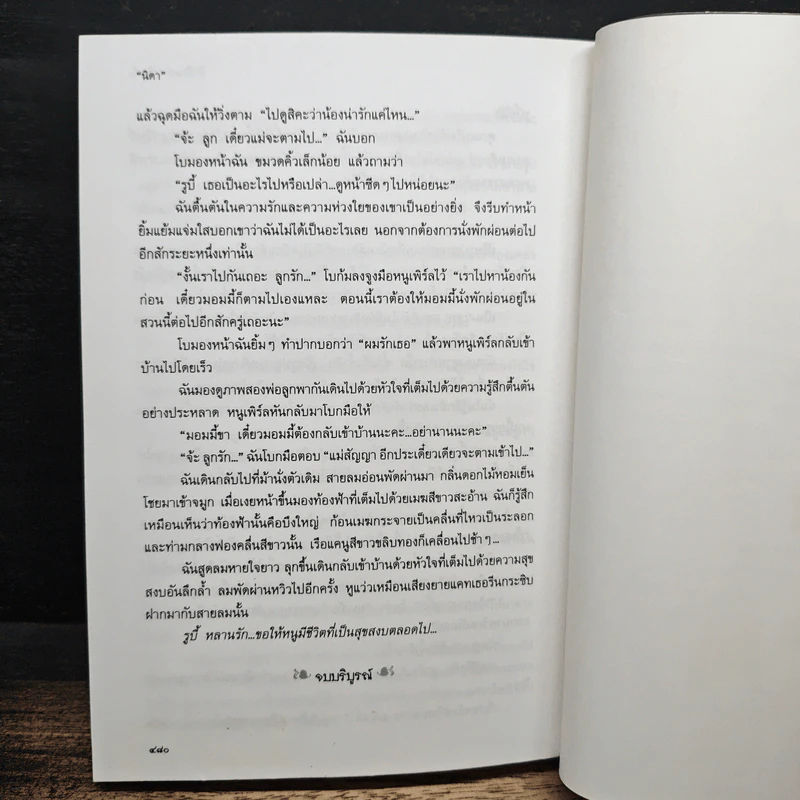 “นิดา”
แล้วฉุดมือฉันให้วิ่งตาม “ไปดูสิคะว่าน้องน่ารักแค่ไหน...”
“จ้ะ ลูก เดี๋ยวแม่จะตามไป...” ฉันบอก
โบมองหน้าฉัน ขมวดคิ้วเล็กน้อย แล้วถามว่า
“รูบี้ เธอเป็นอะไรไปหรือเปล่า...ดูหน้าซีดๆ ไปหน่อยนะ”
ฉันตื้นตันในความรักและความห่วงใยของเขาเป็นอย่างยิ่ง จึงรีบทำหน้า
ยิ้มแย้มแจ่มใสบอกเขาว่าฉันไม่ได้เป็นอะไรเลย นอกจากต้องการนั่งพักผ่อนต่อไป
อีกสักระยะหนึ่งเท่านั้น
“งั้นเราไปกันเถอะ ลูกรัก...” โบก้มลงจูงมือหนูเพิร์ลไว้ “เราไปหาน้องกัน
ก่อน เดี๋ยวมอมมี้ก็ตามไปเองแหละ ตอนนี้เราต้องให้มอมมี้นั่งพักผ่อนอยู่ใน
สวนนี้ต่อไปอีกสักครู่เถอะนะ”
โบมองหน้าฉันยิ้มๆ ทำปากบอกว่า “ผมรักเธอ” แล้วพาหนูเพิร์ลกลับเข้า
บ้านไปโดยเร็ว
ฉันมองดูภาพสองพ่อลูกพากันเดินไปด้วยหัวใจที่เต็มไปด้วยความรู้สึกตื้นตัน
อย่างประหลาด หนูเพิร์ลหันกลับมาโบกมือให้
“มอมมี้ขา เดี๋ยวมอมมี้ต้องกลับเข้าบ้านนะคะ...อย่านานนะคะ”
“จ้ะ ลูกรัก...” ฉันโบกมือตอบ “แม่สัญญา อีกประเดี๋ยวเดียวจะตามเข้าไป...”
ฉันเดินกลับไปที่ม้านั่งตัวเดิม สายลมอ่อนพัดผ่านมา กลิ่นดอกไม้หอมเย็น
โชยมาเข้าจมูก เมื่อเงยหน้าขึ้นมองท้องฟ้าที่เต็มไปด้วยเมฆสีขาวสะอ้าน ฉันก็รู้สึก
เหมือนเห็นว่าท้องฟ้านั้นคือบึงใหญ่ ก้อนเมฆกระจายเป็นคลื่นที่ไหวเป็นระลอก
และท่ามกลางฟองคลื่นสีขาวนั้น เรือแคนูสีขาวขลิบทองก็เคลื่อนไปช้าๆ ...
ฉันสูดลมหายใจยาว ลุกขึ้นเดินกลับเข้าบ้านด้วยหัวใจที่เต็มไปด้วยความสุข
สงบอันลึกล้ำ ลมพัดผ่านหวิวไปอีกครั้ง หูแว่วเหมือนเสียงยายแคทเธอรีนกระซิบ
ฝากมากับสายลมนั้น
รูบี้ หลานรัก...ขอให้หนูมีชีวิตที่เป็นสุขสงบตลอดไป...
จบบริบูรณ์
๔๘๐